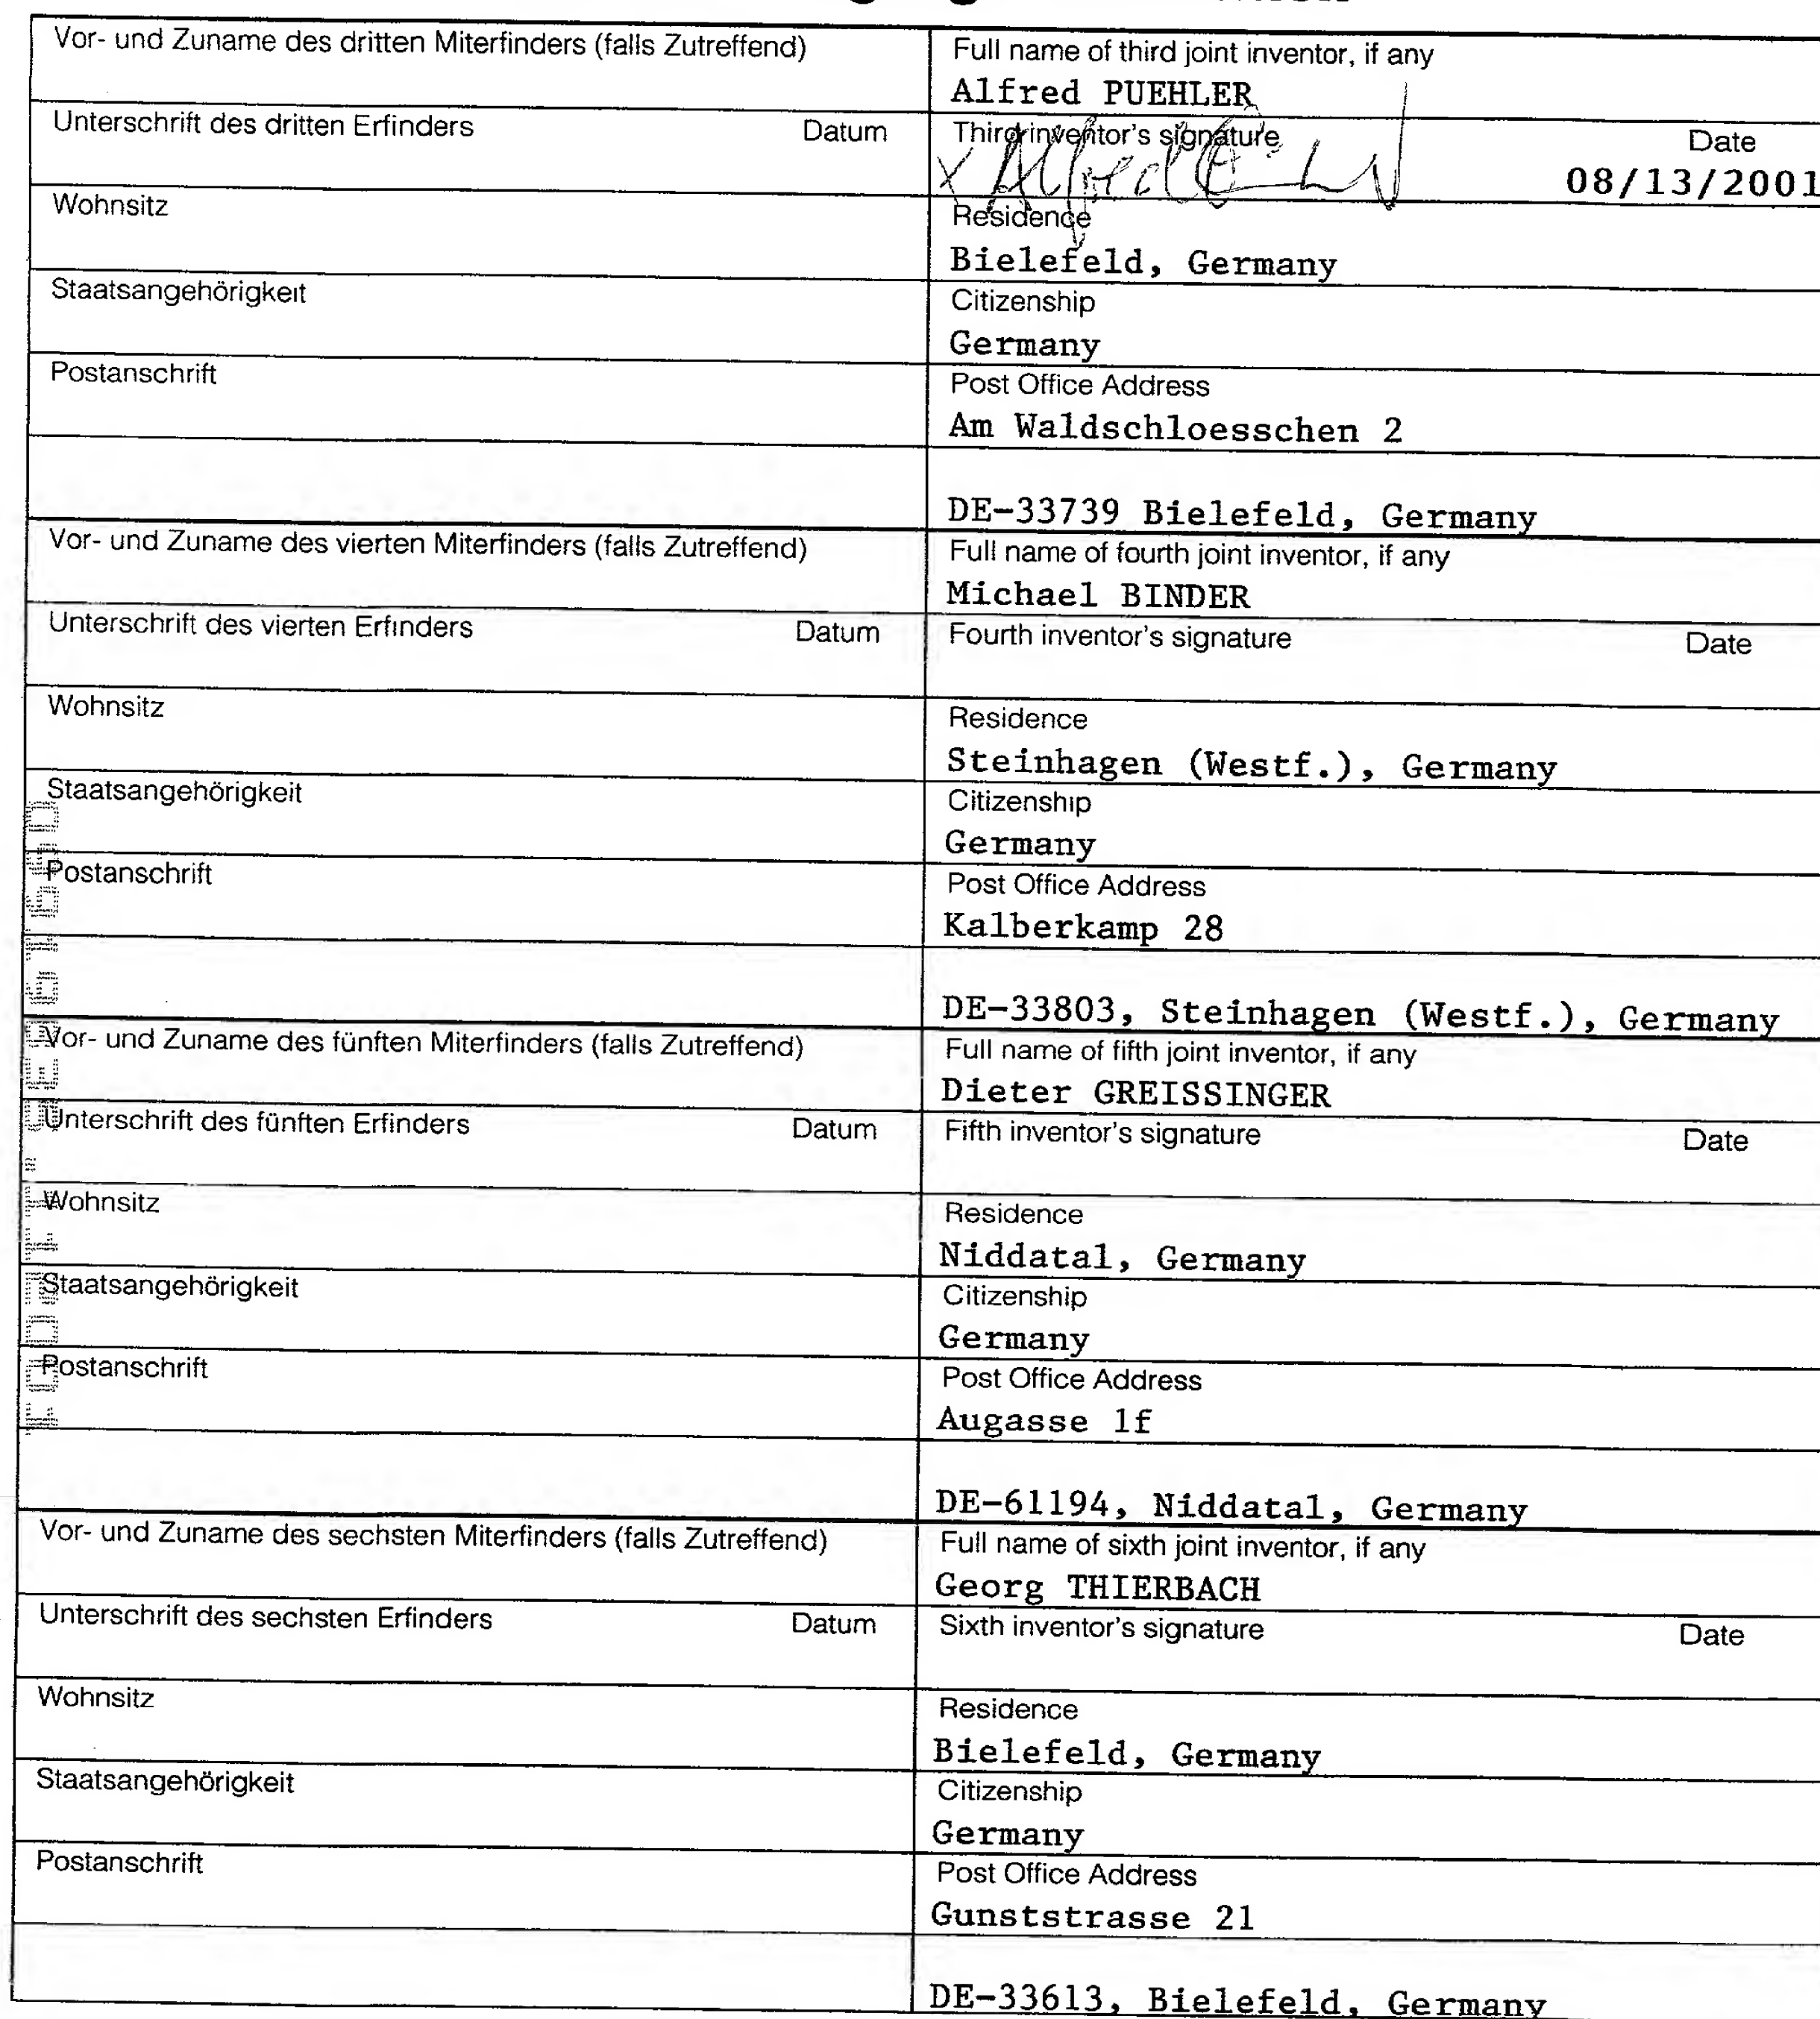 Vor- und Zuname des dritten Miterfinders (falls Zutreffend)
Full name of third joint inventor, if any
Alfred PUEHLER
Unterschrift des dritten Erfinders Datum
Third inventor's signature Date
x Alfred
08/13/2001
Wohnsitz
Residence
Bielefeld, Germany
Staatsangehörigkeit
Citizenship
Germany
Postanschrift
Post Office Address
Am Waldschloesschen 2
DE-33739 Bielefeld, Germany
Vor- und Zuname des vierten Miterfinders (falls Zutreffend)
Full name of fourth joint inventor, if any
Michael BINDER
Unterschrift des vierten Erfinders Datum
Fourth inventor's signature Date
Wohnsitz
Residence
Steinhagen (Westf.), Germany
Staatsangehörigkeit
Citizenship
Germany
Postanschrift
Post Office Address
Kalberkamp 28
DE-33803, Steinhagen (Westf.), Germany
Vor- und Zuname des fünften Miterfinders (falls Zutreffend)
Full name of fifth joint inventor, if any
Dieter GREISSINGER
Unterschrift des fünften Erfinders Datum
Fifth inventor's signature Date
Wohnsitz
Residence
Niddatal, Germany
Staatsangehörigkeit
Citizenship
Germany
Postanschrift
Post Office Address
Augasse 1f
DE-61194, Niddatal, Germany
Vor- und Zuname des sechsten Miterfinders (falls Zutreffend)
Full name of sixth joint inventor, if any
Georg THIERBACH
Unterschrift des sechsten Erfinders Datum
Sixth inventor's signature Date
Wohnsitz
Residence
Bielefeld, Germany
Staatsangehörigkeit
Citizenship
Germany
Postanschrift
Post Office Address
Gunststrasse 21
DE-33613, Bielefeld, Germany